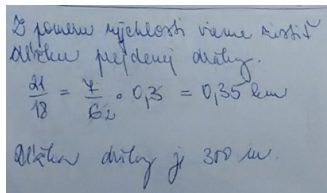 Z pomeru rýchlosti vieme zistiť
dĺžku prejdenej dráhy.
21/18 = 7/6 · 0,3 = 0,35 km
Dĺžka dráhy je 300 m.